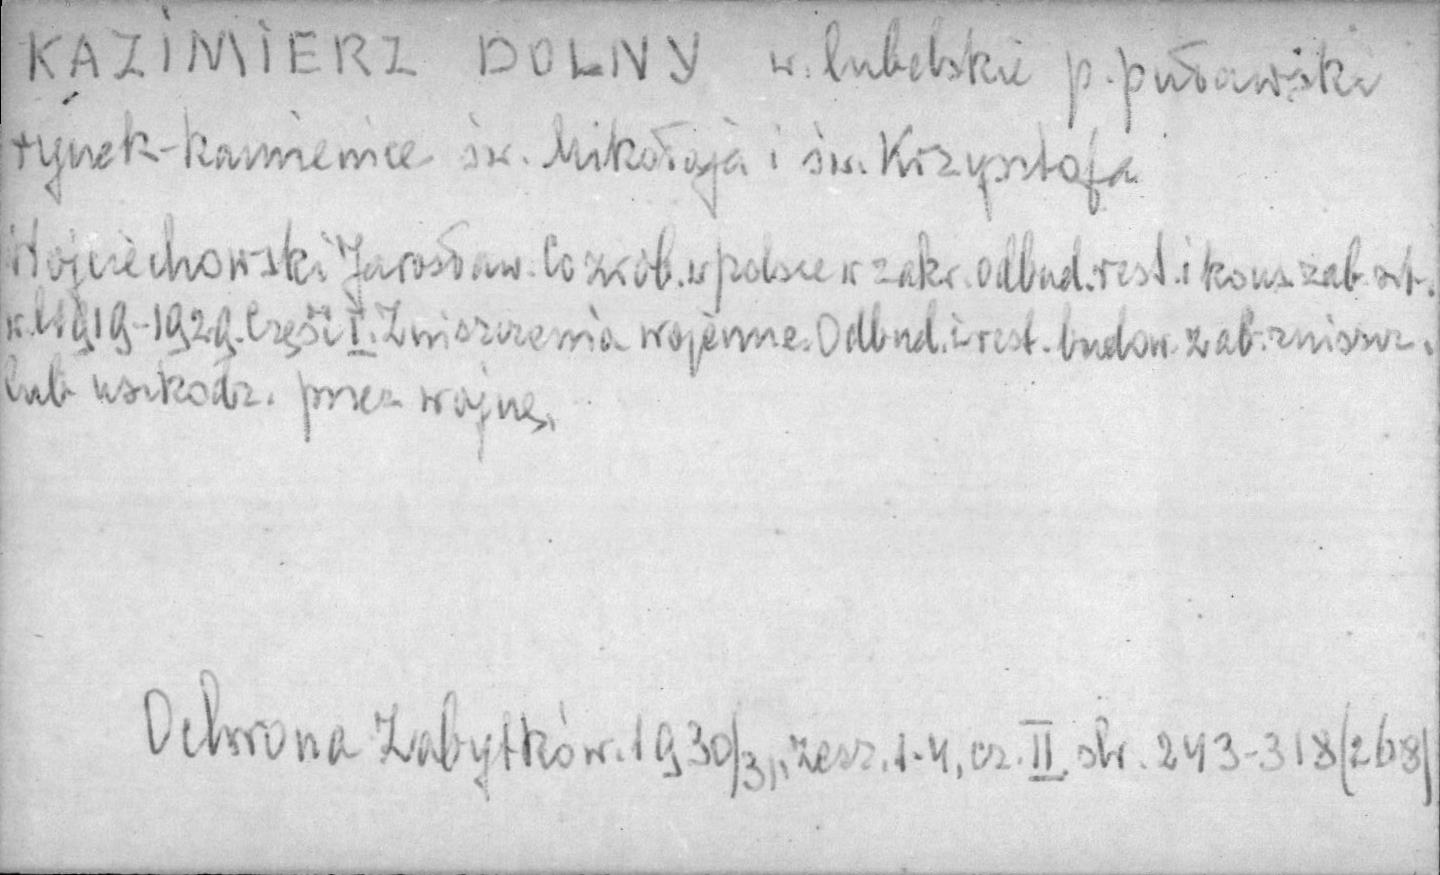 KAZIMIERZ DOLNY w. lubelskie p. puławski
rynek-kamienice św. Mikołaja i św. Krzysztofa
Wojciechowski Jarosław. Co zrob. w polsce w zakr. odbud. rest. i kons. zab. szt.
w l. 1919-1929. Część I. Zniszczenia wojenne. Odbud. i rest. budow. zab. zniszcz.
lub uszkodz. przez wojnę.
Ochrona Zabytków. 1930/31, zesz. 1-4, cz. II, str. 243-318 (268)